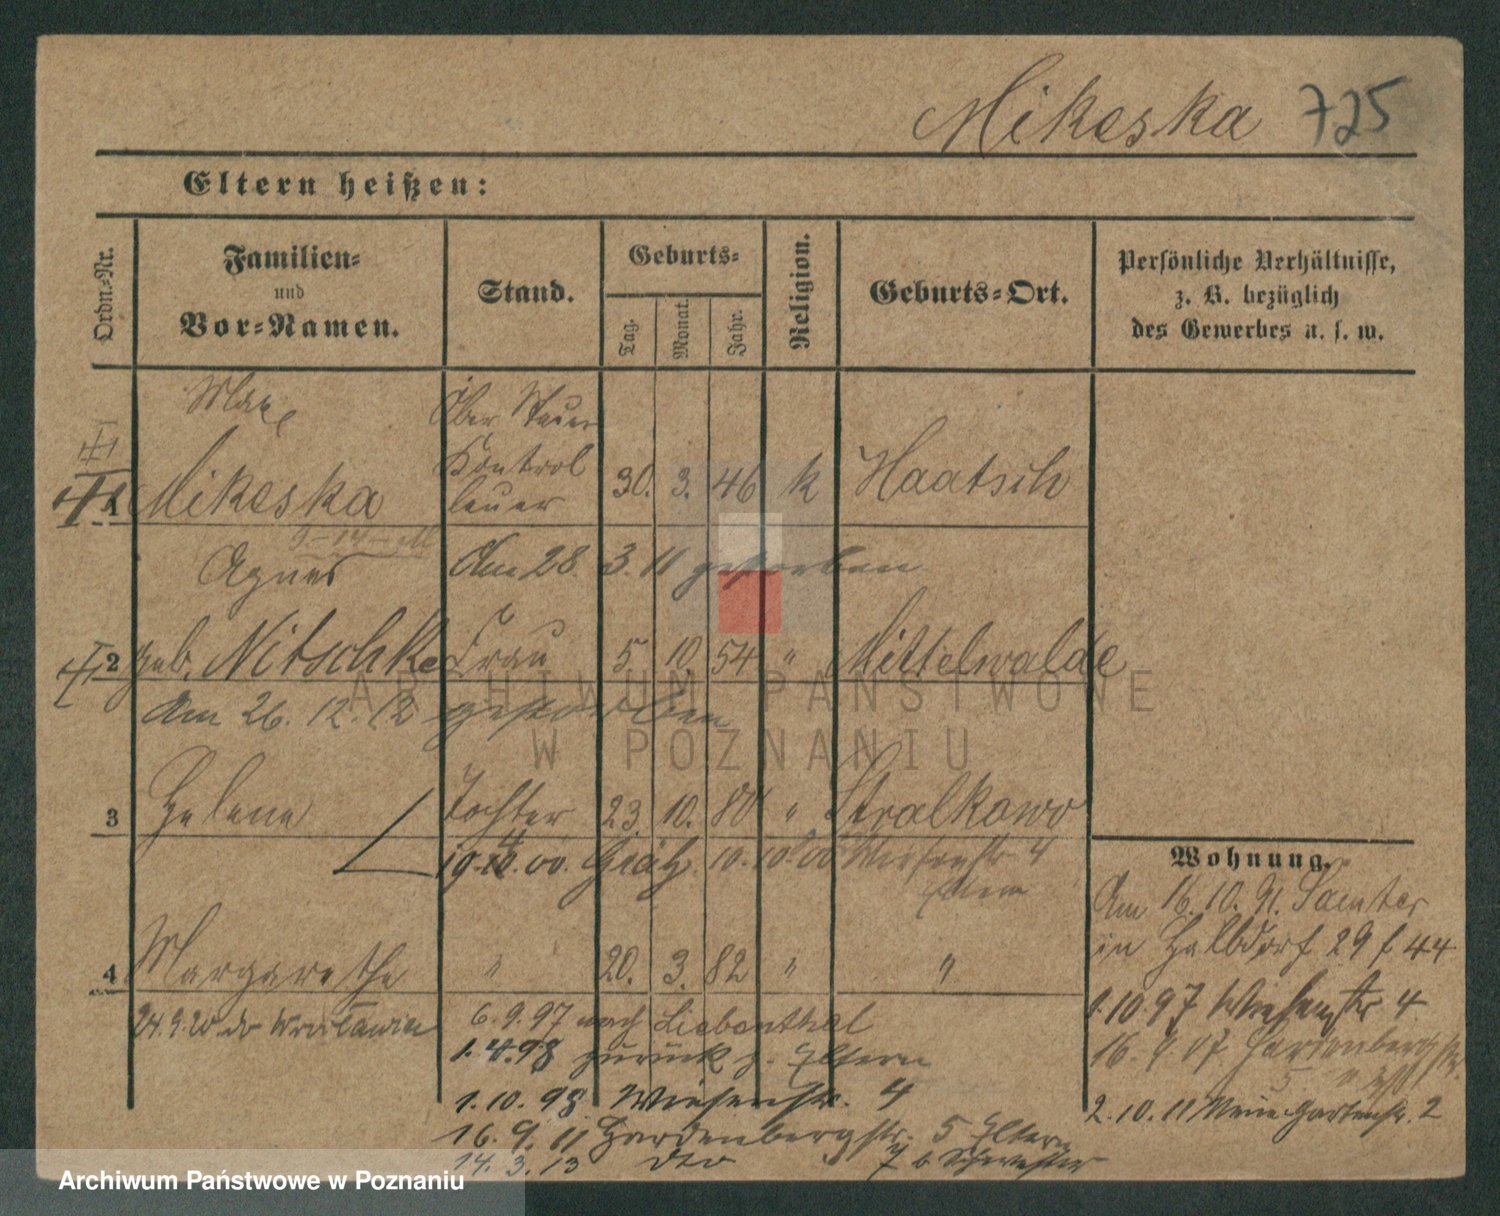 Mikeska 725
Eltern heißen:
Ordn.-Nr.
Familien-
und
Vor-Namen.
Stand.
Geburts-
Tag.
Monat.
Jahr.
Religion.
Geburts-Ort.
Persönliche Verhältnisse,
z. B. bezüglich
des Gewerbes u. s. w.
Max
Ober Steuer
Kontrol
1 Mikeska leuer 30. 3. 46 k Haatsch
Agnes Am 28. 3. 11 gestorben
2 geb. Nitschke Frau 5. 10. 54 " Mittelwalde
Am 26. 12. 12 gestorben
3 Helene Tochter 23. 10. 80 " Stralkowo
Grätz 10. 10. 00 Wiesenstr 4
4 Margarethe " 20. 3. 82 " "
24.9.20 do Wrocławia
6.9.97 nach Liebenthal
1.4.98 zurück z. Eltern
1.10.98 Wiesenstr. 4
16.9.11 Hardenbergstr. 5 Eltern
14.3.13 dto 7 b Schwester
Wohnung.
Am 16.10.91. Samter
in Halbdorf 29 f 44
1.10.97 Wiesenstr 4
16. 9. 07 Hardenbergstr.
5
2.10.11 Neue Gartenstr. 2
ARCHIWUM PAŃSTWOWE
W POZNANIU
Archiwum Państwowe w Poznaniu